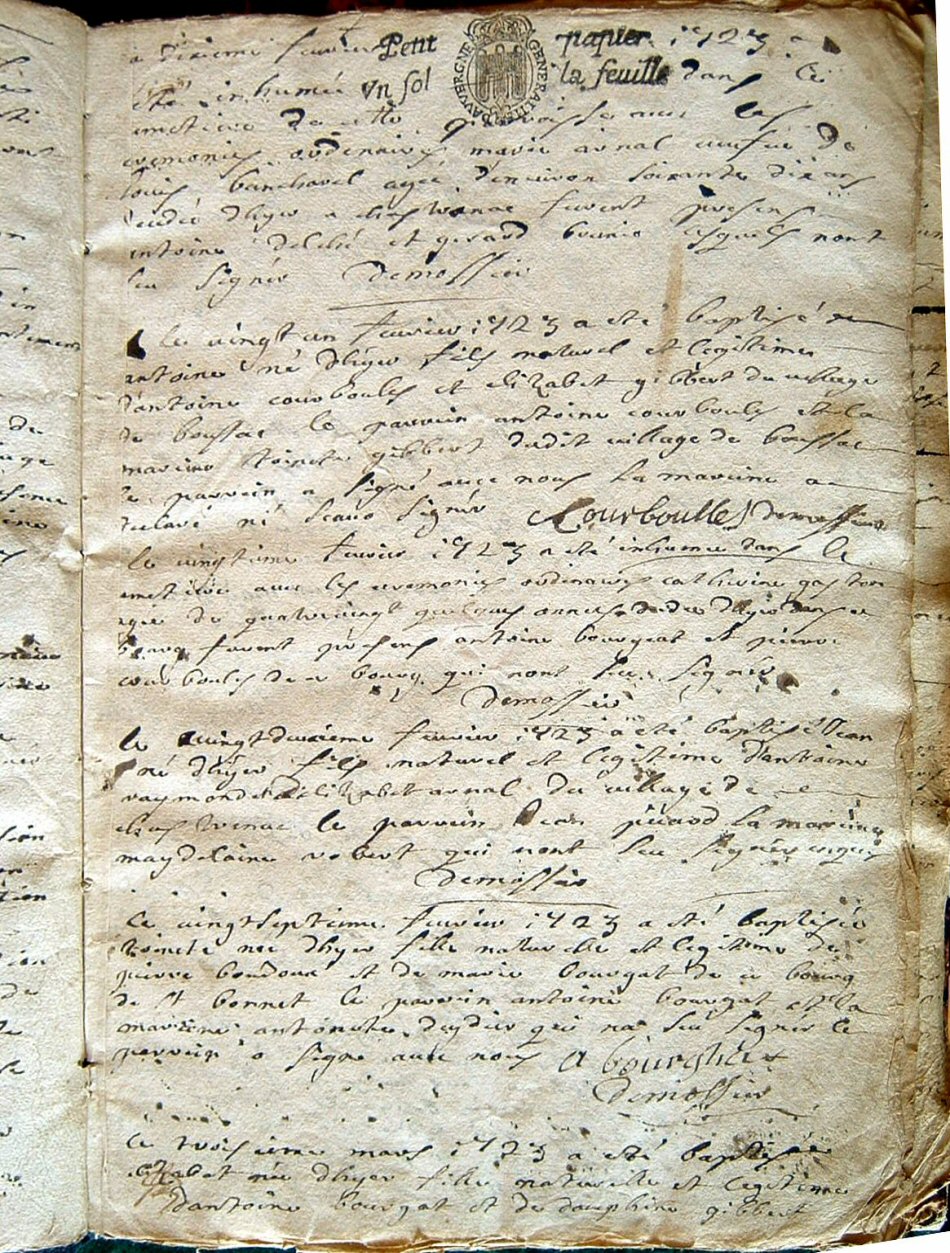 Petit papier
Vn sol la feuille
D'AVVERGNE GENERALITE
fevrier 1723 a
eté inhumé dans le
de cette paroisse avec les
ceremonies ordinaires marie arnal de
louis agée denuiron soixante dix ans
dhyer a furent presens
antoine et gerard lesquels nont
seu signér demossier
le vingt un fevrier 1723 a eté baptisé
antoine né dhyer fils naturel et legitime
dantoine courboules et elizabet gibbert du village
de boussac le parrein antoine courboules et la
mareine toinete gibbert dudit village de boussac
le parrein a signé avec nous la mareine a
declaré ne scavoir signér Courboulles demossier
le vingtieme fevrier 1723 a eté inhumée dans le
avec les ceremonies ordinaires catherine gaston
agée de quatrevingt quelques années dhyer dans ce
bourg furent presens antoine bourgeat et pierre
courboules de ce bourg qui nont seu signér
demossier
le vingtdeuxieme fevrier 1723 a eté baptisé Jean
né dhyer fils naturel et legitime dantoine
raymond et delizabet arnal du village de
le parrein Jean la mareine
magdelaine robert qui nont seu signér
demossier
le vingtseptieme fevrier 1723 a eté baptisée
toinete née dhyer fille naturelle et legitime de
pierre boudou et de marie bourgat de ce bourg
de st bonnet le parrein antoine bourgat et la
mareine antoinete qui na seu signér le
parrein a signé avec nous
demossier
le troisieme mars 1723 a eté baptisée
elizabet née dhyer fille naturelle et legitime
dantoine bourgat et de dauphine gibbert